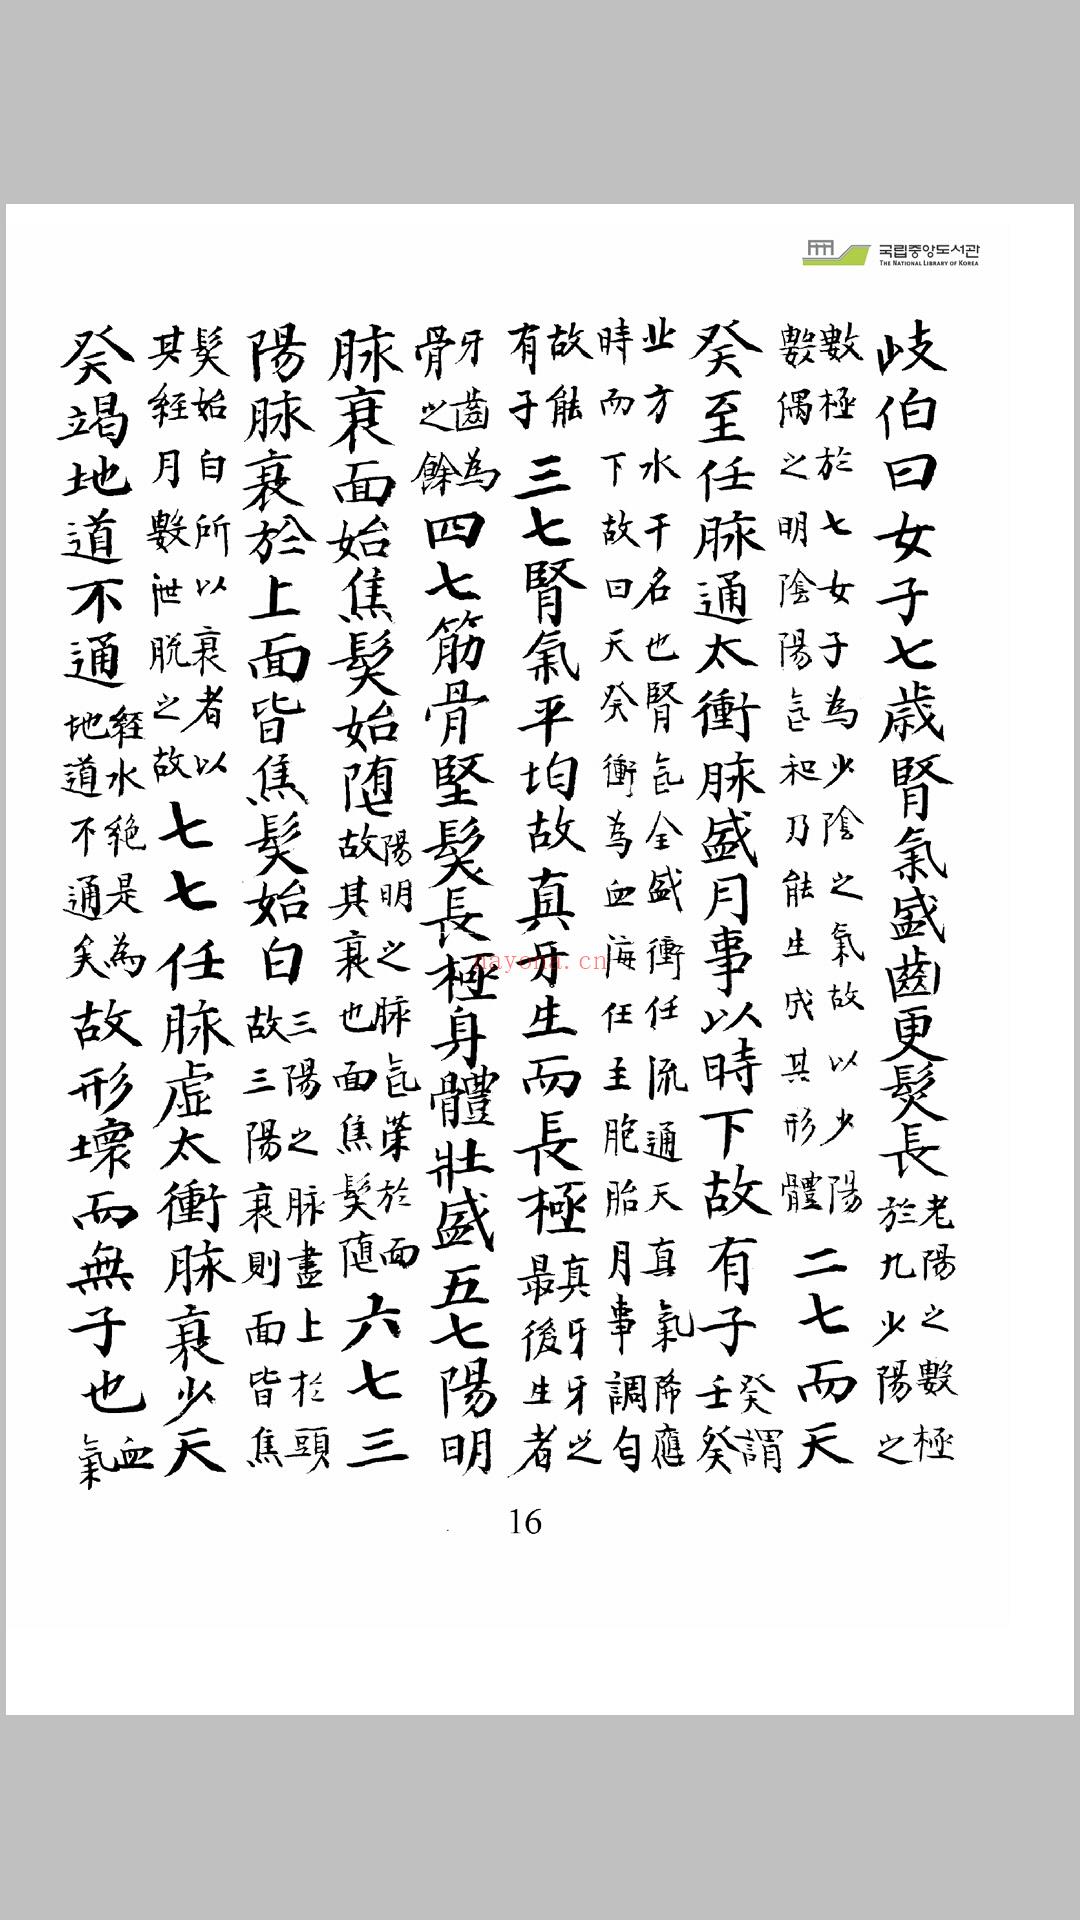 국립중앙도서관
THE NATIONAL LIBRARY OF KOREA
歧伯曰女子七歳腎氣盛齒更髮長老陽之數極於九少陽之
數極於七女子為少陰之氣故以少陽數偶之明陰陽气和乃能生成其形體二七而天
癸至任脉通太衝脉盛月事以時下故有子癸謂壬癸
北方水干名也腎气全盛衝任流通天真氣降應時而下故曰天癸衝為血海任主胞胎月事調匀
故能有子三七腎氣平均故真牙生而長極真牙牙之最後生者
牙齒為骨之餘四七筋骨堅髮長極身體壯盛五七陽明
脉衰面始焦髮始随陽明之脉气荣於面故其衰也面焦髮随六七三
陽脉衰於上面皆焦髮始白三陽之脉盡上於頭故三陽衰則面皆焦
髮始白所以衰者以其経月數泄脱之故七七任脉虚太衝脉衰少天
癸竭地道不通経水絶是為地道不通矣故形壞而無子也血氣
16
nayona.cn